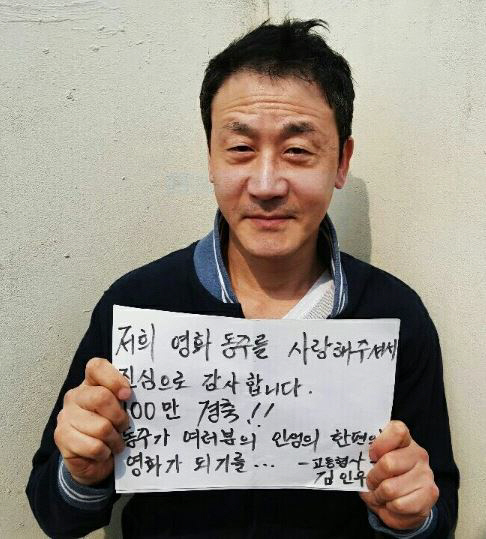 저희 영화 동주를 사랑해주셔서
진심으로 감사합니다.
100만 경축!!
동주가 여러분의 인생의 한편의
영화가 되기를... -고등형사-
김인우